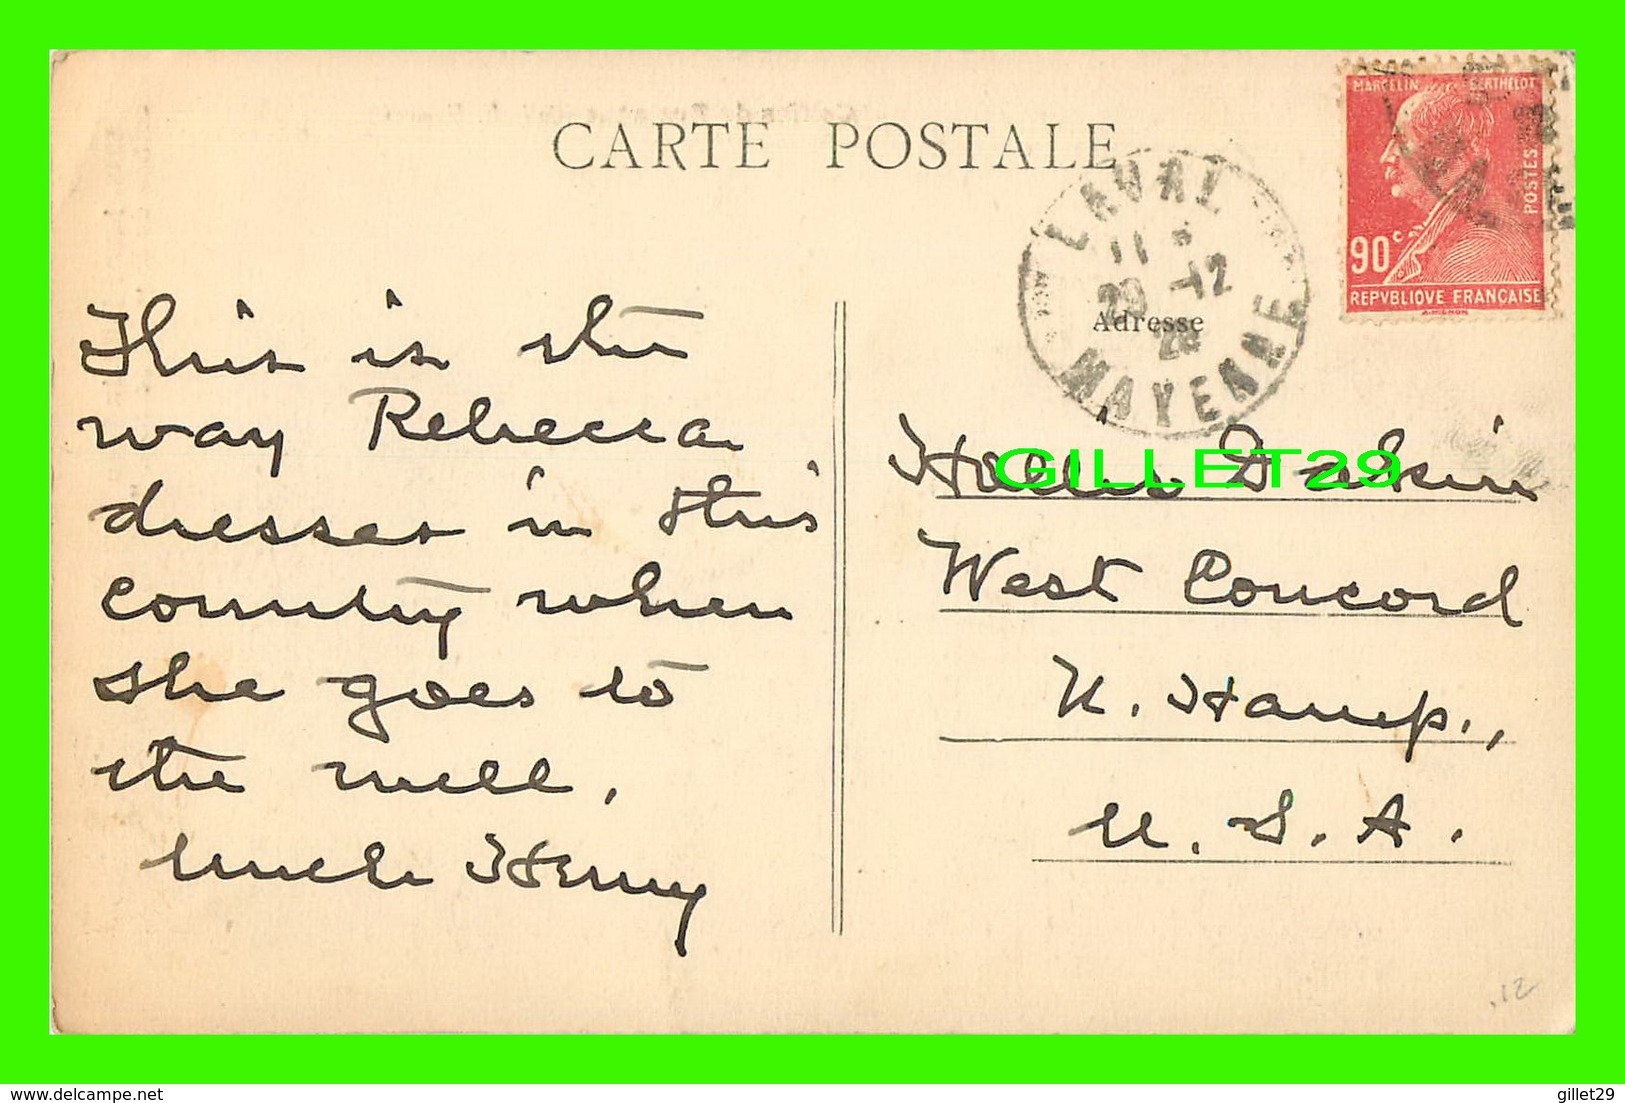 CARTE POSTALE
MARCELIN BERTHELOT
POSTES
90c
REPVBLIQVE FRANÇAISE
A. MIGNON
LAVAL
11
29 -12
28
MAYENNE
Adresse
This is the
way Rebecca
dresses in this
country when
she goes to
the well.
Uncle Henry
Hollis
GILLET29
West Concord
N. Hamp.,
U. S. A.
.12
gillet29